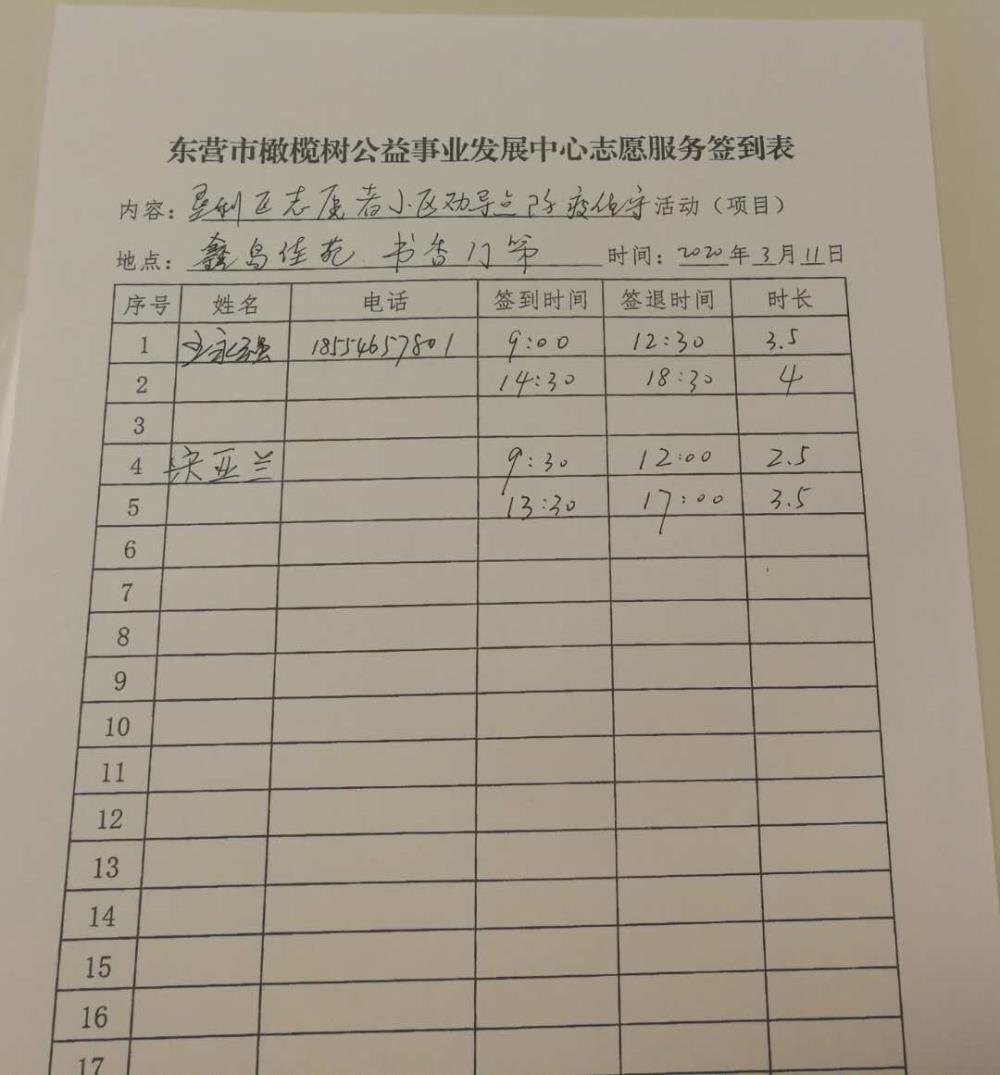 东营市橄榄树公益事业发展中心志愿服务签到表
内容：垦利区志愿者小区劝导点防疫值守活动（项目）
地点：鑫岛佳苑 书香门第 时间：2020年3月11日
序号 姓名 电话 签到时间 签退时间 时长
1 王永强 18554657801 9:00 12:30 3.5
2 14:30 18:30 4
3
4 宋亚兰 9:30 12:00 2.5
5 13:30 17:00 3.5
6
7
8
9
10
11
12
13
14
15
16
17